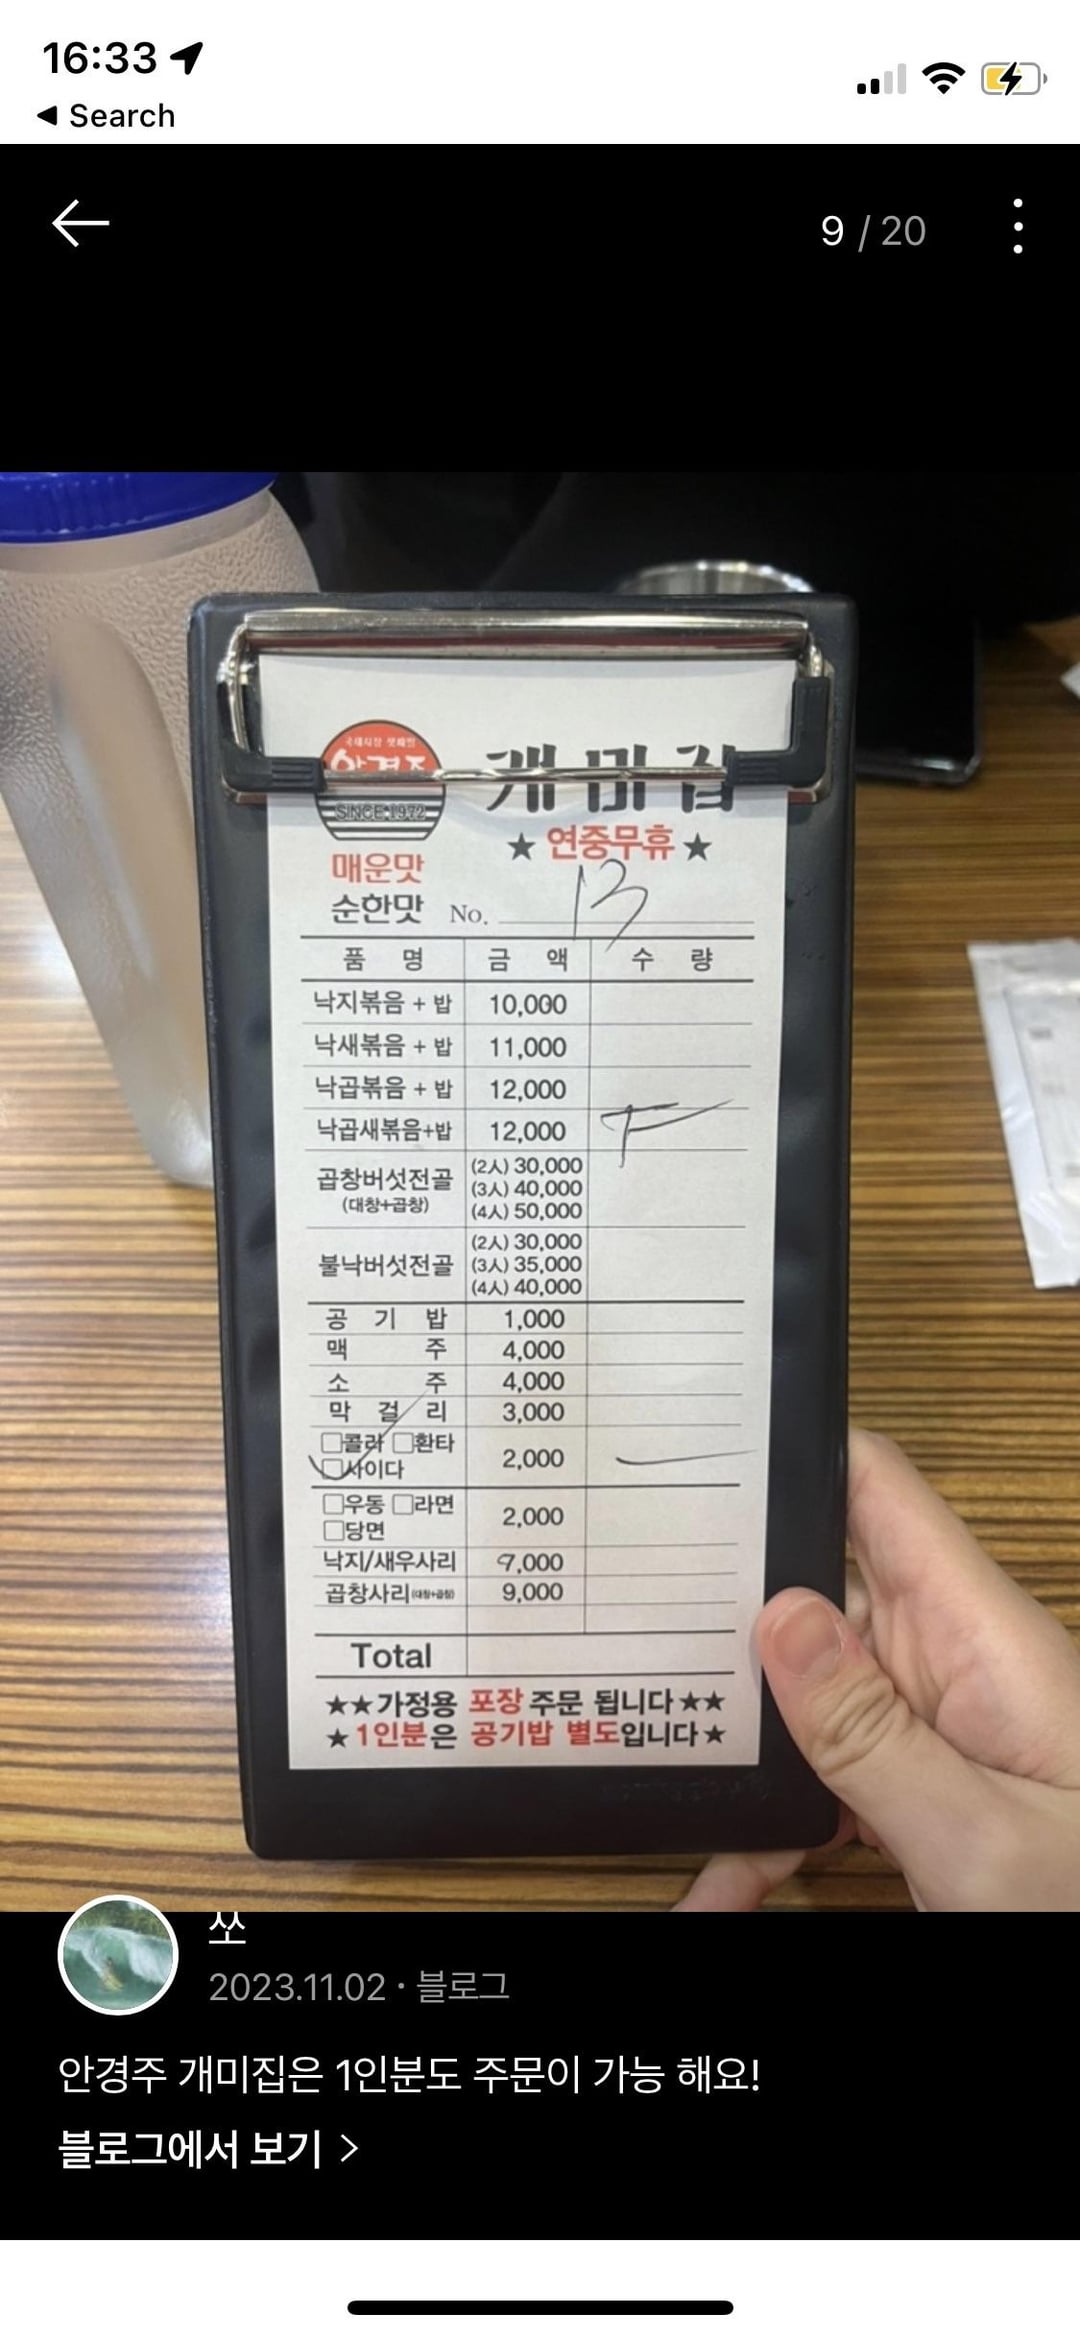 16:33
Search
9 / 20
국대시장 첫째집
안경주
SINCE 1972
개미집
★ 연중무휴 ★
매운맛
순한맛 No. 13
품 명 금 액 수 량
낙지볶음 + 밥 10,000
낙새볶음 + 밥 11,000
낙곱볶음 + 밥 12,000
낙곱새볶음+밥 12,000
곱창버섯전골 (2人) 30,000
(대창+곱창) (3人) 40,000
(4人) 50,000
(2人) 30,000
불낙버섯전골 (3人) 35,000
(4人) 40,000
공 기 밥 1,000
맥 주 4,000
소 주 4,000
막 걸 리 3,000
□콜라 □환타
□사이다 2,000
□우동 □라면
□당면 2,000
낙지/새우사리 9,000
곱창사리(대창+곱창) 9,000
Total
★★가정용 포장 주문 됩니다★★
★1인분은 공기밥 별도입니다★
쏘
2023.11.02 · 블로그
안경주 개미집은 1인분도 주문이 가능 해요!
블로그에서 보기 >